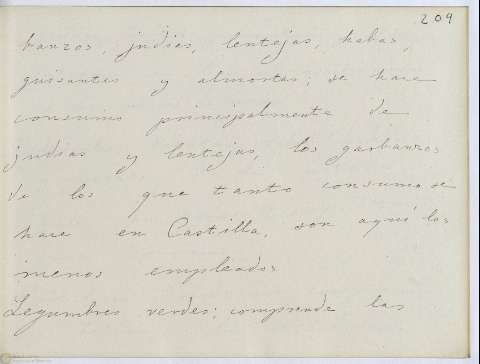 209
banzos, judias, lentejas, habas,
guisantes y almortas; se hace
consumo principalmente de
judias y lentejas, los garbanzos
de los que tanto consumo se
hace en Castilla, son aquí los
menos empleados
Legumbres verdes: comprende las